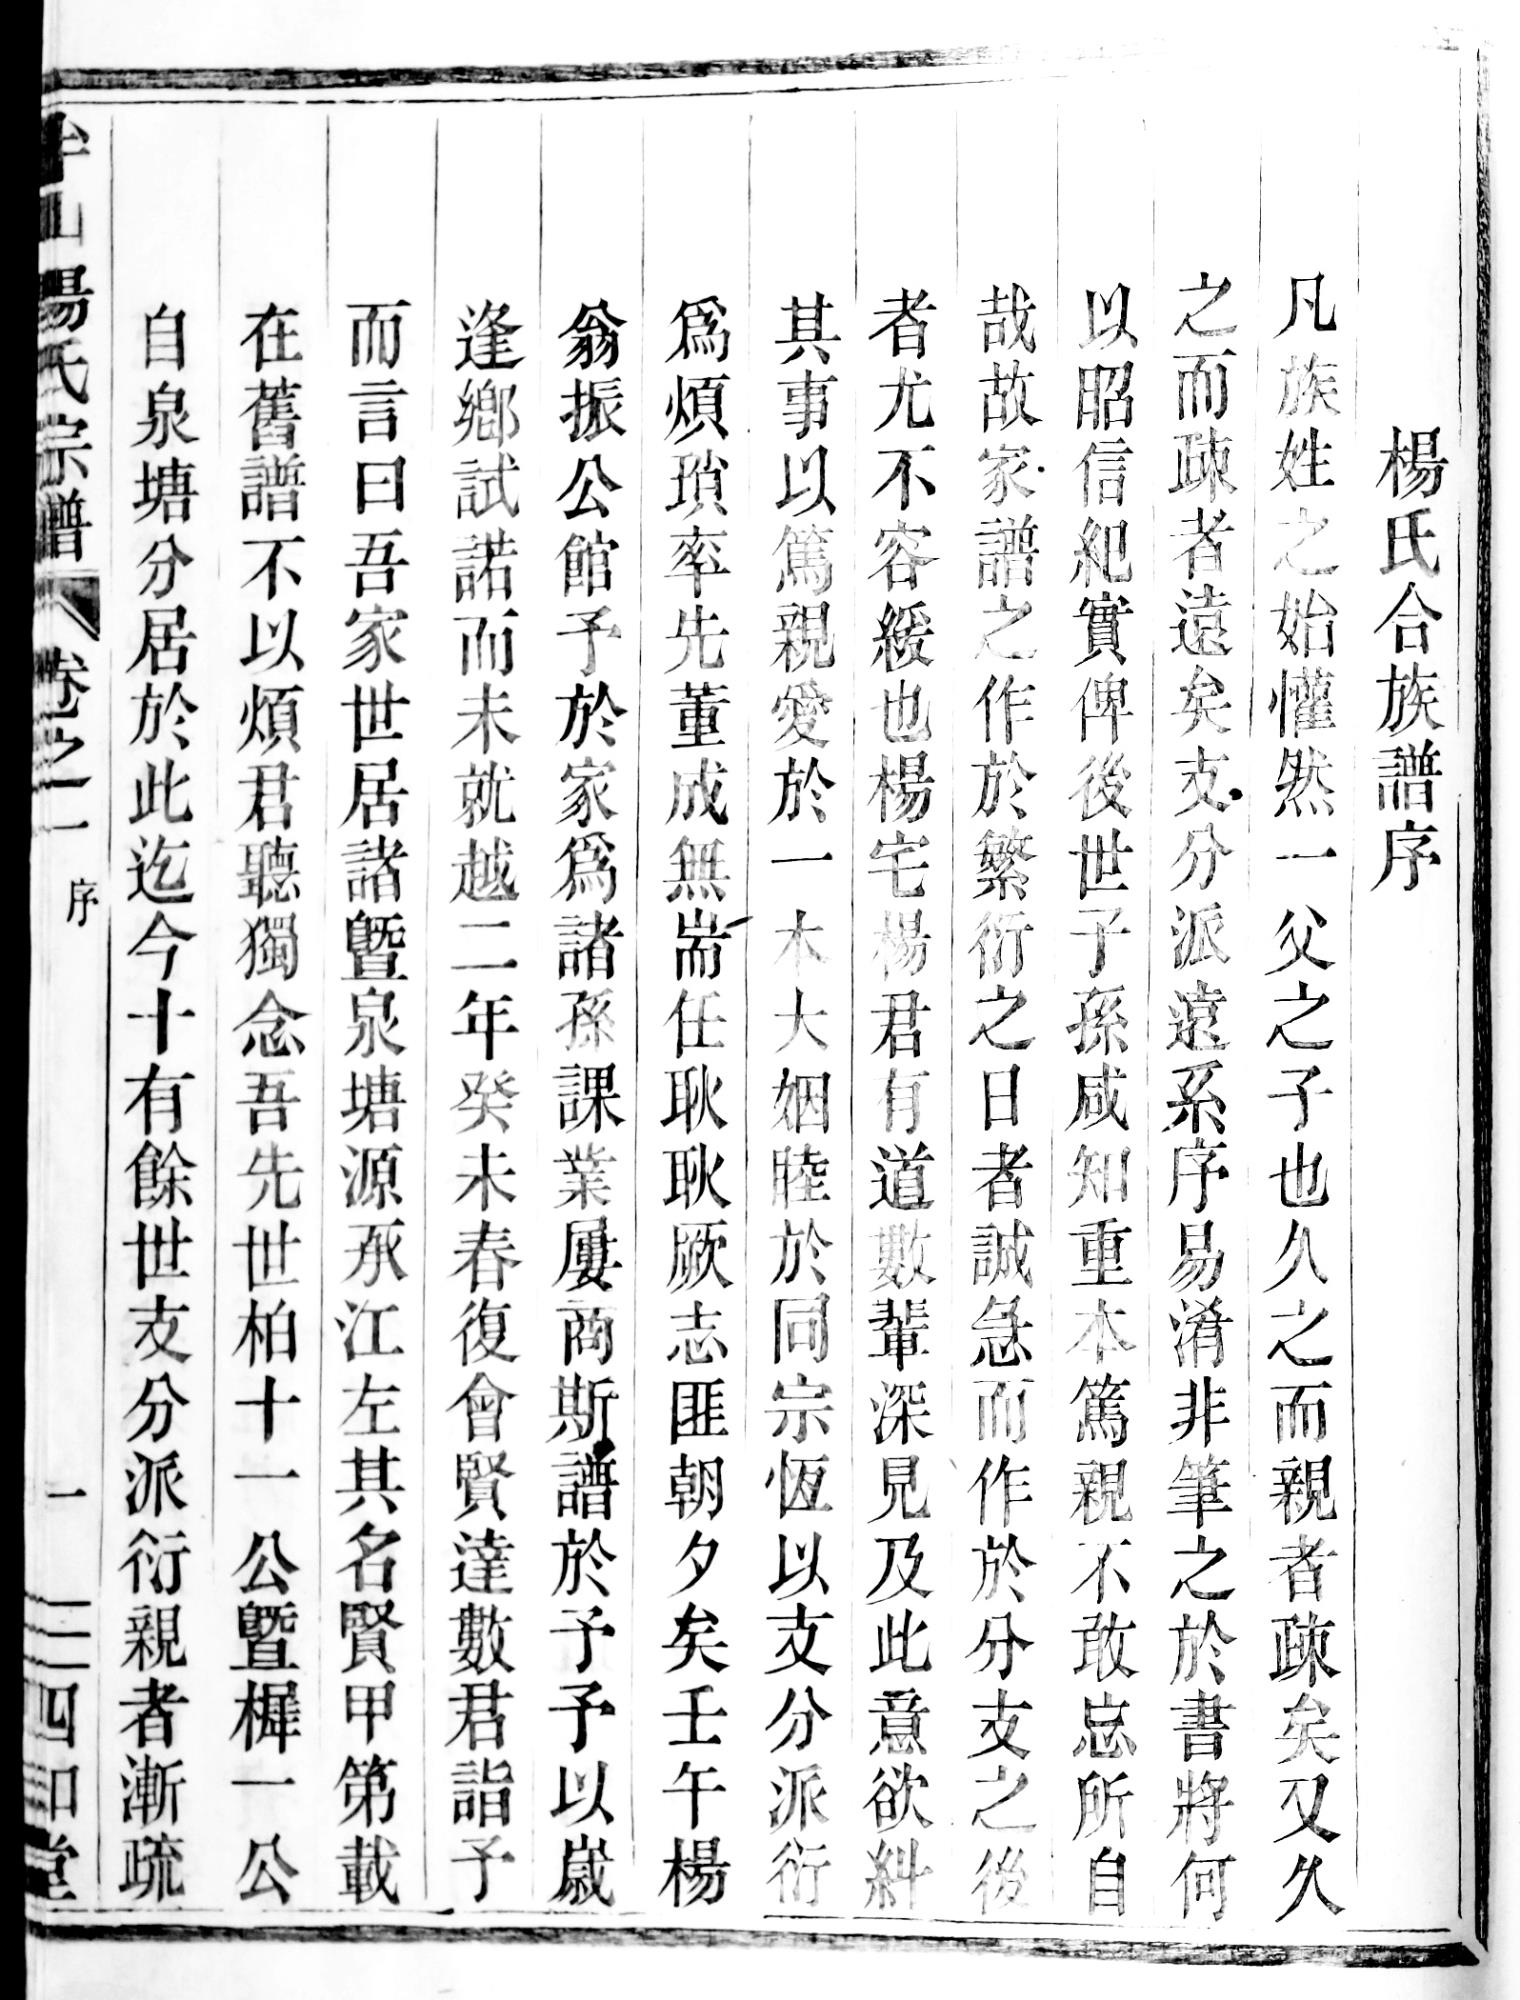 楊氏合族譜序
凡族姓之始懽然一父之子也久之而親者疎矣又久
之而疎者遠矣支分派遠系序易淆非筆之於書將何
以昭信紀實俾後世子孫咸知重本篤親不敢忘所自
哉故家譜之作於繁衍之日者誠急而作於分支之後
者尤不容緩也楊宅楊君有道數輩深見及此意欲糾
其事以篤親愛於一本大姻睦於同宗恆以支分派衍
爲煩瑣率先董成無耑任耿耿厥志匪朝夕矣壬午楊
翁振公館予於家爲諸孫課業屢商斯譜於予予以歲
逢鄉試諾而未就越二年癸未春復會賢達數君詣予
而言曰吾家世居諸曁泉塘源承江左其名賢甲第載
在舊譜不以煩君聽獨念吾先世柏十一公曁樨一公
自泉塘分居於此迄今十有餘世支分派衍親者漸疏
山楊氏宗譜 卷之一 序 一 四和堂